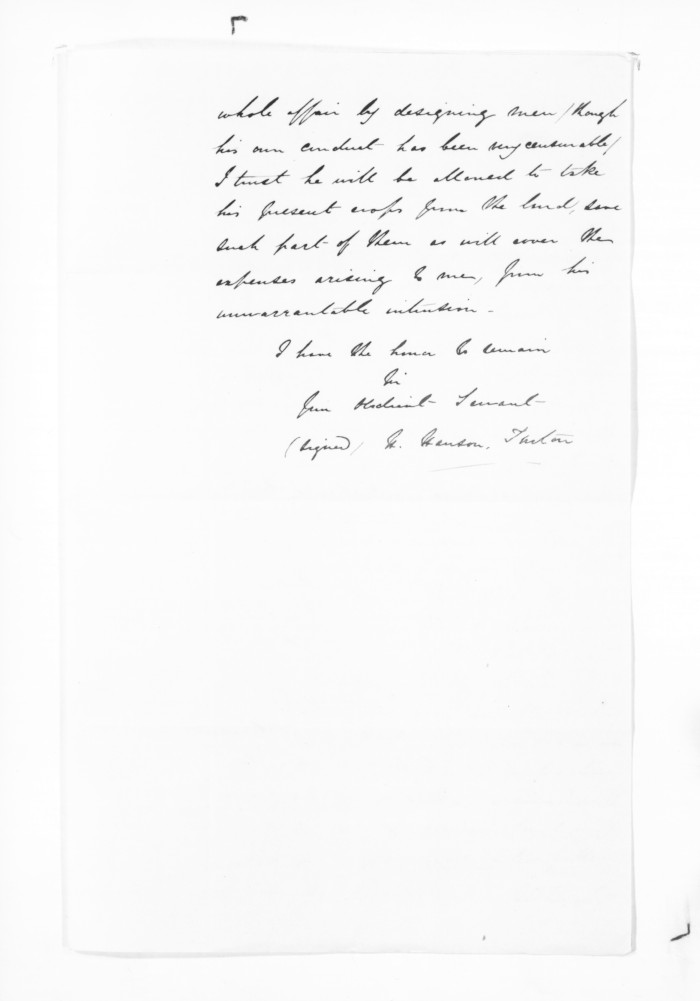 whole affair by designing men / though
his own conduct has been very censurable /
I trust he will be allowed to take
his present crops from the land, save
such part of them as will cover the
expenses arising to me, from his
unwarrantable intrusion -
I have the honor to remain
Sir
Your Obedient Servant
(signed) H. Hanson. Turton